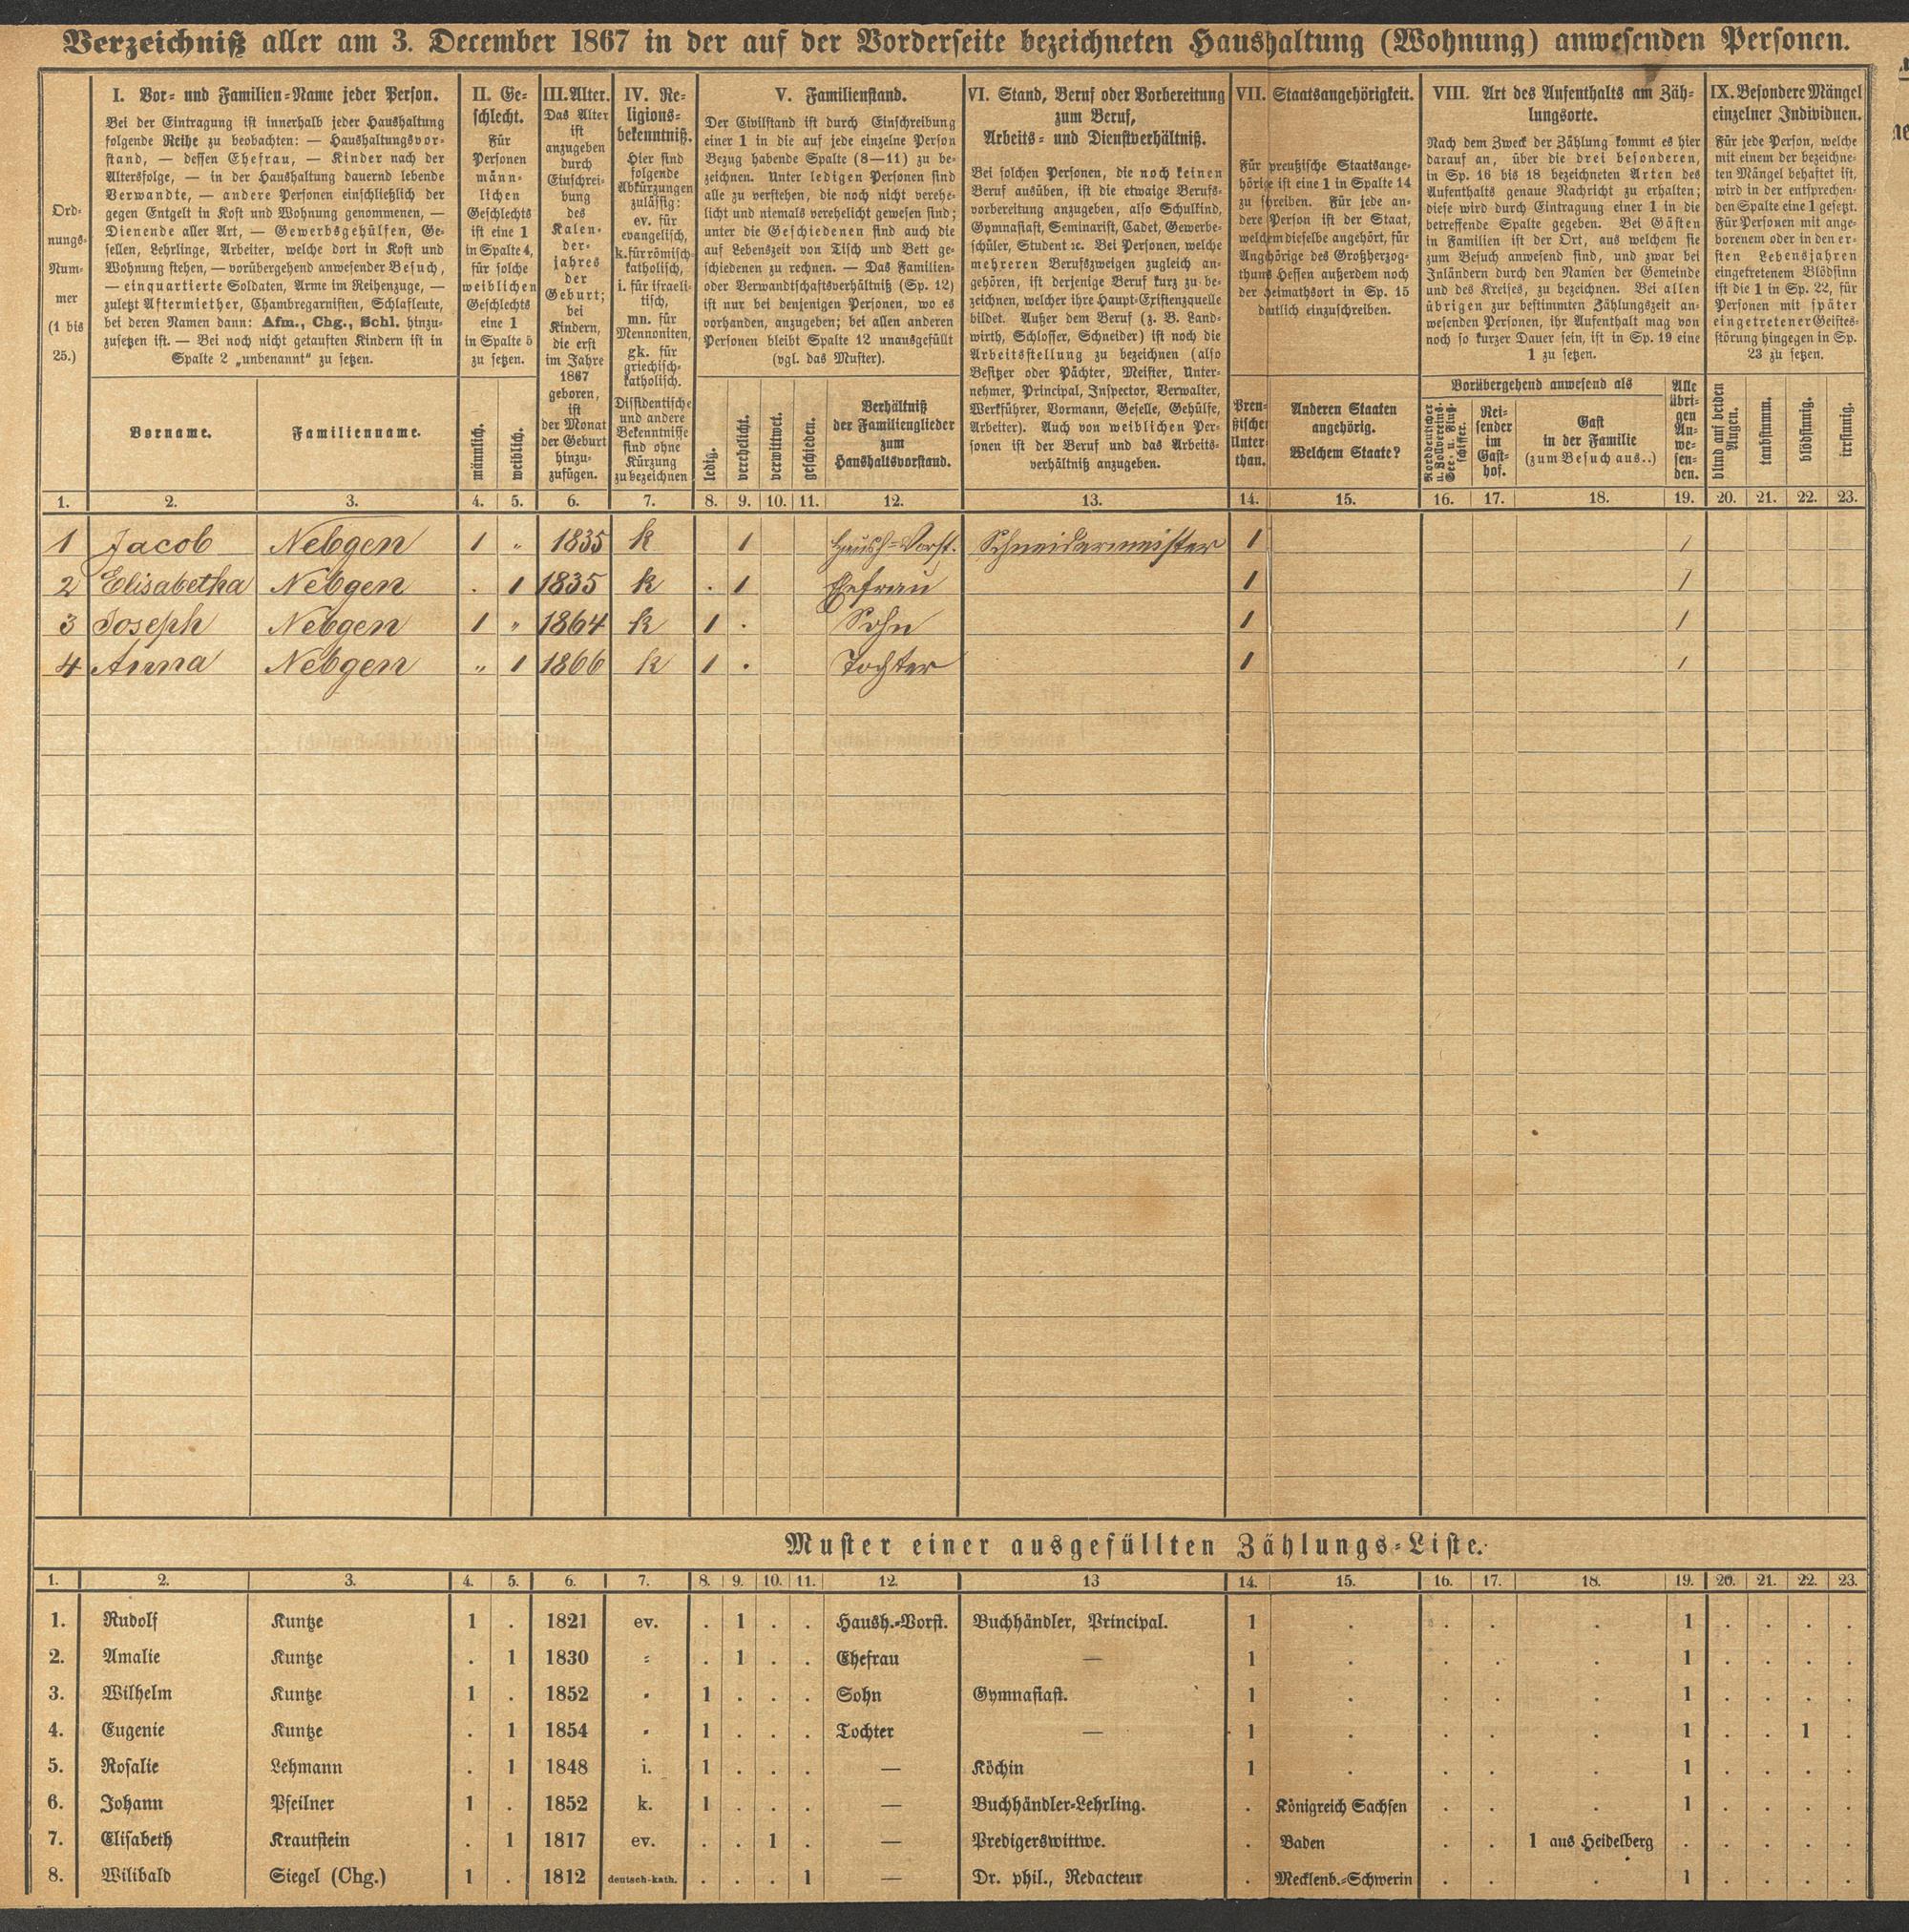 Verzeichniß aller am 3. December 1867 in der auf der Vorderseite bezeichneten Haushaltung (Wohnung) anwesenden Personen.
Ord-
nungs-
Num-
mer
(1 bis
25.)
I. Vor- und Familien-Name jeder Person.
Bei der Eintragung ist innerhalb jeder Haushaltung
folgende Reihe zu beobachten: — Haushaltungsvor-
stand, — dessen Ehefrau, — Kinder nach der
Altersfolge, — in der Haushaltung dauernd lebende
Verwandte, — andere Personen einschließlich der
gegen Entgelt in Kost und Wohnung genommenen, —
Dienende aller Art, — Gewerbsgehülfen, Ge-
sellen, Lehrlinge, Arbeiter, welche dort in Kost und
Wohnung stehen, — vorübergehend anwesender Besuch,
— einquartierte Soldaten, Arme im Reihenzuge, —
zuletzt Aftermiether, Chambregarnisten, Schlafleute,
bei deren Namen dann: Afm., Chg., Schl. hinzu-
zusetzen ist. — Bei noch nicht getauften Kindern ist in
Spalte 2 „unbenannt“ zu setzen.
Vorname.
Familienname.
II. Ge-
schlecht.
Für
Personen
männ-
lichen
Geschlechts
ist eine 1
in Spalte 4,
für solche
weiblichen
Geschlechts
eine 1
in Spalte 5
zu setzen.
männlich.
weiblich.
III. Alter.
Das Alter
ist
anzugeben
durch
Einschrei-
bung
des
Kalen-
der-
jahres
der
Geburt;
bei
Kindern,
die erst
im Jahre
1867
geboren,
ist
der Monat
der Geburt
hinzu-
zufügen.
IV. Re-
ligions-
bekenntniß.
Hier sind
folgende
Abkürzungen
zulässig:
ev. für
evangelisch,
k. für römisch-
katholisch,
i. für israeli-
tisch,
mn. für
Mennoniten,
gk. für
griechisch-
katholisch.
Dissidentische
und andere
Bekenntnisse
sind ohne
Kürzung
zu bezeichnen
V. Familienstand.
Der Civilstand ist durch Einschreibung
einer 1 in die auf jede einzelne Person
Bezug habende Spalte (8—11) zu be-
zeichnen. Unter ledigen Personen sind
alle zu verstehen, die noch nicht verehe-
licht und niemals verehelicht gewesen sind;
unter die Geschiedenen sind auch die
auf Lebenszeit von Tisch und Bett ge-
schiedenen zu rechnen. — Das Familien-
oder Verwandtschaftsverhältniß (Sp. 12)
ist nur bei denjenigen Personen, wo es
vorhanden, anzugeben; bei allen anderen
Personen bleibt Spalte 12 unausgefüllt
(vgl. das Muster).
ledig.
verehelicht.
verwittwet.
geschieden.
Verhältniß
der Familienglieder
zum
Haushaltsvorstand.
VI. Stand, Beruf oder Vorbereitung
zum Beruf,
Arbeits- und Dienstverhältniß.
Bei solchen Personen, die noch keinen
Beruf ausüben, ist die etwaige Berufs-
vorbereitung anzugeben, also Schulkind,
Gymnasiast, Seminarist, Cadet, Gewerbe-
schüler, Student ꝛc. Bei Personen, welche
mehreren Berufszweigen zugleich an-
gehören, ist derjenige Beruf kurz zu be-
zeichnen, welcher ihre Haupt-Existenzquelle
bildet. Außer dem Beruf (z. B. Land-
wirth, Schlosser, Schneider) ist noch die
Arbeitsstellung zu bezeichnen (also
Besitzer oder Pächter, Meister, Unter-
nehmer, Principal, Inspector, Verwalter,
Werkführer, Vormann, Geselle, Gehülfe,
Arbeiter). Auch von weiblichen Per-
sonen ist der Beruf und das Arbeits-
verhältniß anzugeben.
VII. Staatsangehörigkeit.
Für preußische Staatsange-
hörige ist eine 1 in Spalte 14
zu schreiben. Für jede an-
dere Person ist der Staat,
welchem dieselbe angehört, für
Angehörige des Großherzog-
thums Hessen außerdem noch
der Heimathsort in Sp. 15
deutlich einzuschreiben.
Preu-
ßischer
Unter-
than.
Anderen Staaten
angehörig.
Welchem Staate?
VIII. Art des Aufenthalts am Zäh-
lungsorte.
Nach dem Zweck der Zählung kommt es hier
darauf an, über die drei besonderen,
in Sp. 16 bis 18 bezeichneten Arten des
Aufenthalts genaue Nachricht zu erhalten;
diese wird durch Eintragung einer 1 in die
betreffende Spalte gegeben. Bei Gästen
in Familien ist der Ort, aus welchem sie
zum Besuch anwesend sind, und zwar bei
Inländern durch den Namen der Gemeinde
und des Kreises, zu bezeichnen. Bei allen
übrigen zur bestimmten Zählungszeit an-
wesenden Personen, ihr Aufenthalt mag von
noch so kurzer Dauer sein, ist in Sp. 19 eine
1 zu setzen.
Vorübergehend anwesend als
Norddeutscher
u. Zollvereins-
See- u. Fluß-
schiffer.
Rei-
sender
im
Gast-
hof.
Gast
in der Familie
(zum Besuch aus..)
Alle
übri-
gen
An-
we-
sen-
den.
IX. Besondere Mängel
einzelner Individuen.
Für jede Person, welche
mit einem der bezeichne-
ten Mängel behaftet ist,
wird in der entsprechen-
den Spalte eine 1 gesetzt.
Für Personen mit ange-
borenem oder in den er-
sten Lebensjahren
eingetretenem Blödsinn
ist die 1 in Sp. 22, für
Personen mit später
eingetretener Geistes-
störung hingegen in Sp.
23 zu setzen.
blind auf beiden
Augen.
taubstumm.
blödsinnig.
irrsinnig.
1. 2. 3. 4. 5. 6. 7. 8. 9. 10. 11. 12. 13. 14. 15. 16. 17. 18. 19. 20. 21. 22. 23.
1 Jacob Nebgen 1 " 1835 k 1 Haush=Vorst. Schneidermeister 1 1
2 Elisabetha Nebgen . 1 1835 k . 1 Ehefrau 1 1
3 Joseph Nebgen 1 " 1864 k 1 . Sohn 1 1
4 Anna Nebgen " 1 1866 k 1 . Tochter 1 1
Muster einer ausgefüllten Zählungs-Liste.
1. 2. 3. 4. 5. 6. 7. 8. 9. 10. 11. 12. 13 14. 15. 16. 17. 18. 19. 20. 21. 22. 23.
1. Rudolf Kuntze 1 . 1821 ev. . 1 . . Haush.-Vorst. Buchhändler, Principal. 1 . . . . 1 . . . .
2. Amalie Kuntze . 1 1830 " . 1 . . Ehefrau — 1 . . . . 1 . . . .
3. Wilhelm Kuntze 1 . 1852 " 1 . . . Sohn Gymnasiast. 1 . . . . 1 . . . .
4. Eugenie Kuntze . 1 1854 " 1 . . . Tochter — 1 . . . . 1 . . 1 .
5. Rosalie Lehmann . 1 1848 i. 1 . . . — Köchin 1 . . . . 1 . . . .
6. Johann Pfeilner 1 . 1852 k. 1 . . . — Buchhändler-Lehrling. . Königreich Sachsen . . . 1 . . . .
7. Elisabeth Krautstein . 1 1817 ev. . . 1 . — Predigerswittwe. . Baden . . 1 aus Heidelberg . . . . .
8. Wilibald Siegel (Chg.) 1 . 1812 deutsch-kath. . . . 1 — Dr. phil., Redacteur . Mecklenb.-Schwerin . . . 1 . . . .